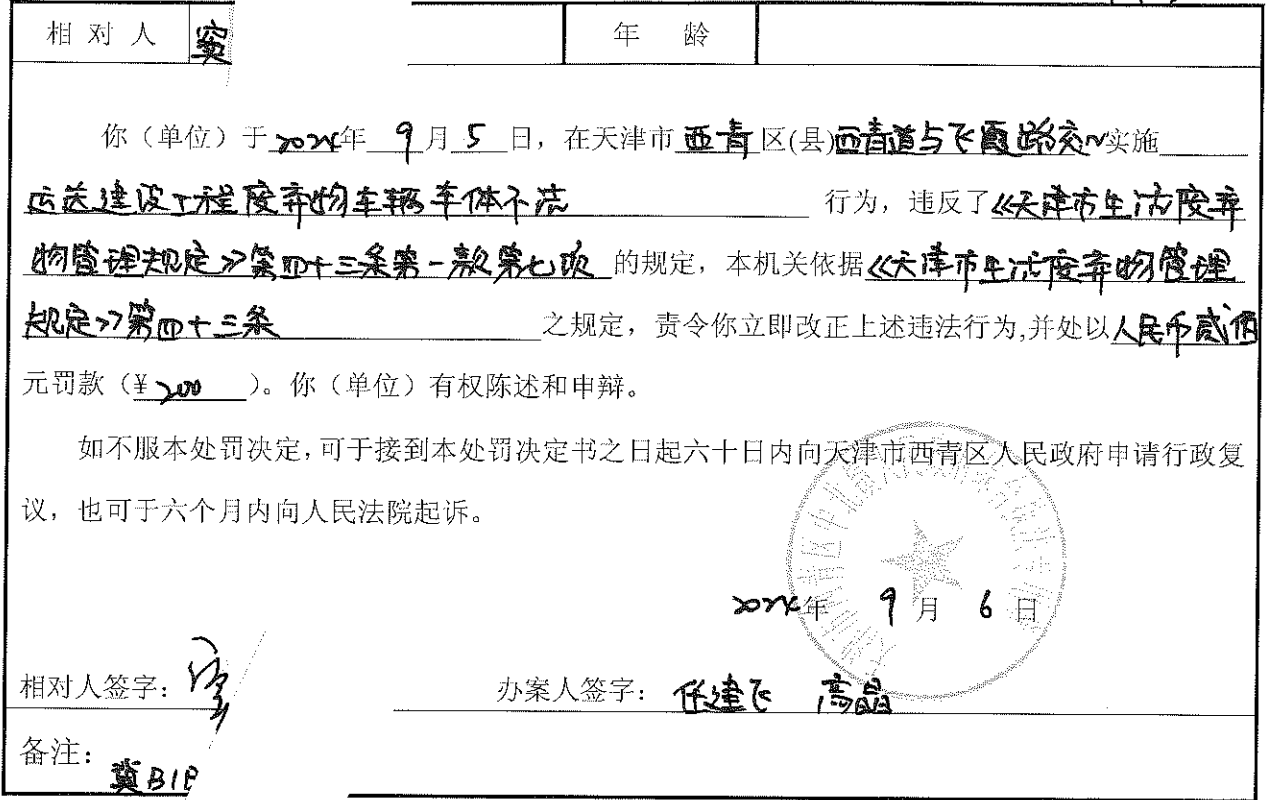 相对人 窦 年龄
你（单位）于2024年9月5日，在天津市西青区(县)西青道与飞霞路交~实施
运送建设工程废弃物车辆车体不洁 行为，违反了《天津市生活废弃
物管理规定》第四十三条第一款第七项的规定，本机关依据《天津市生活废弃物管理
规定》第四十三条之规定，责令你立即改正上述违法行为,并处以人民币贰佰
元罚款（¥200）。你（单位）有权陈述和申辩。
如不服本处罚决定,可于接到本处罚决定书之日起六十日内向天津市西青区人民政府申请行政复
议，也可于六个月内向人民法院起诉。
2024年9月6日
相对人签字：窦 办案人签字：任建飞 高晶
备注：冀B1P